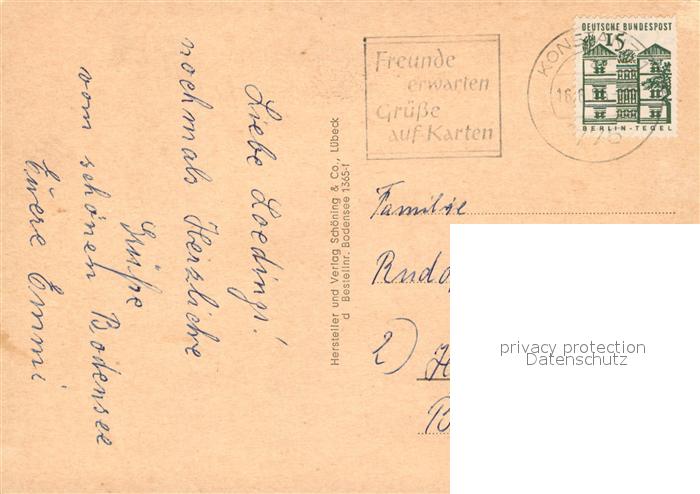 Liebe Loedings!
nochmals Herzliche
Grüße
vom schönen Bodensee
Eure Emmi
Hersteller und Verlag Schöning & Co., Lübeck
d Bestellnr. Bodensee 1365-t
Freunde
erwarten
Grüße
auf Karten
DEUTSCHE BUNDESPOST
15
BERLIN-TEGEL
Familie
2)
privacy protection
Datenschutz